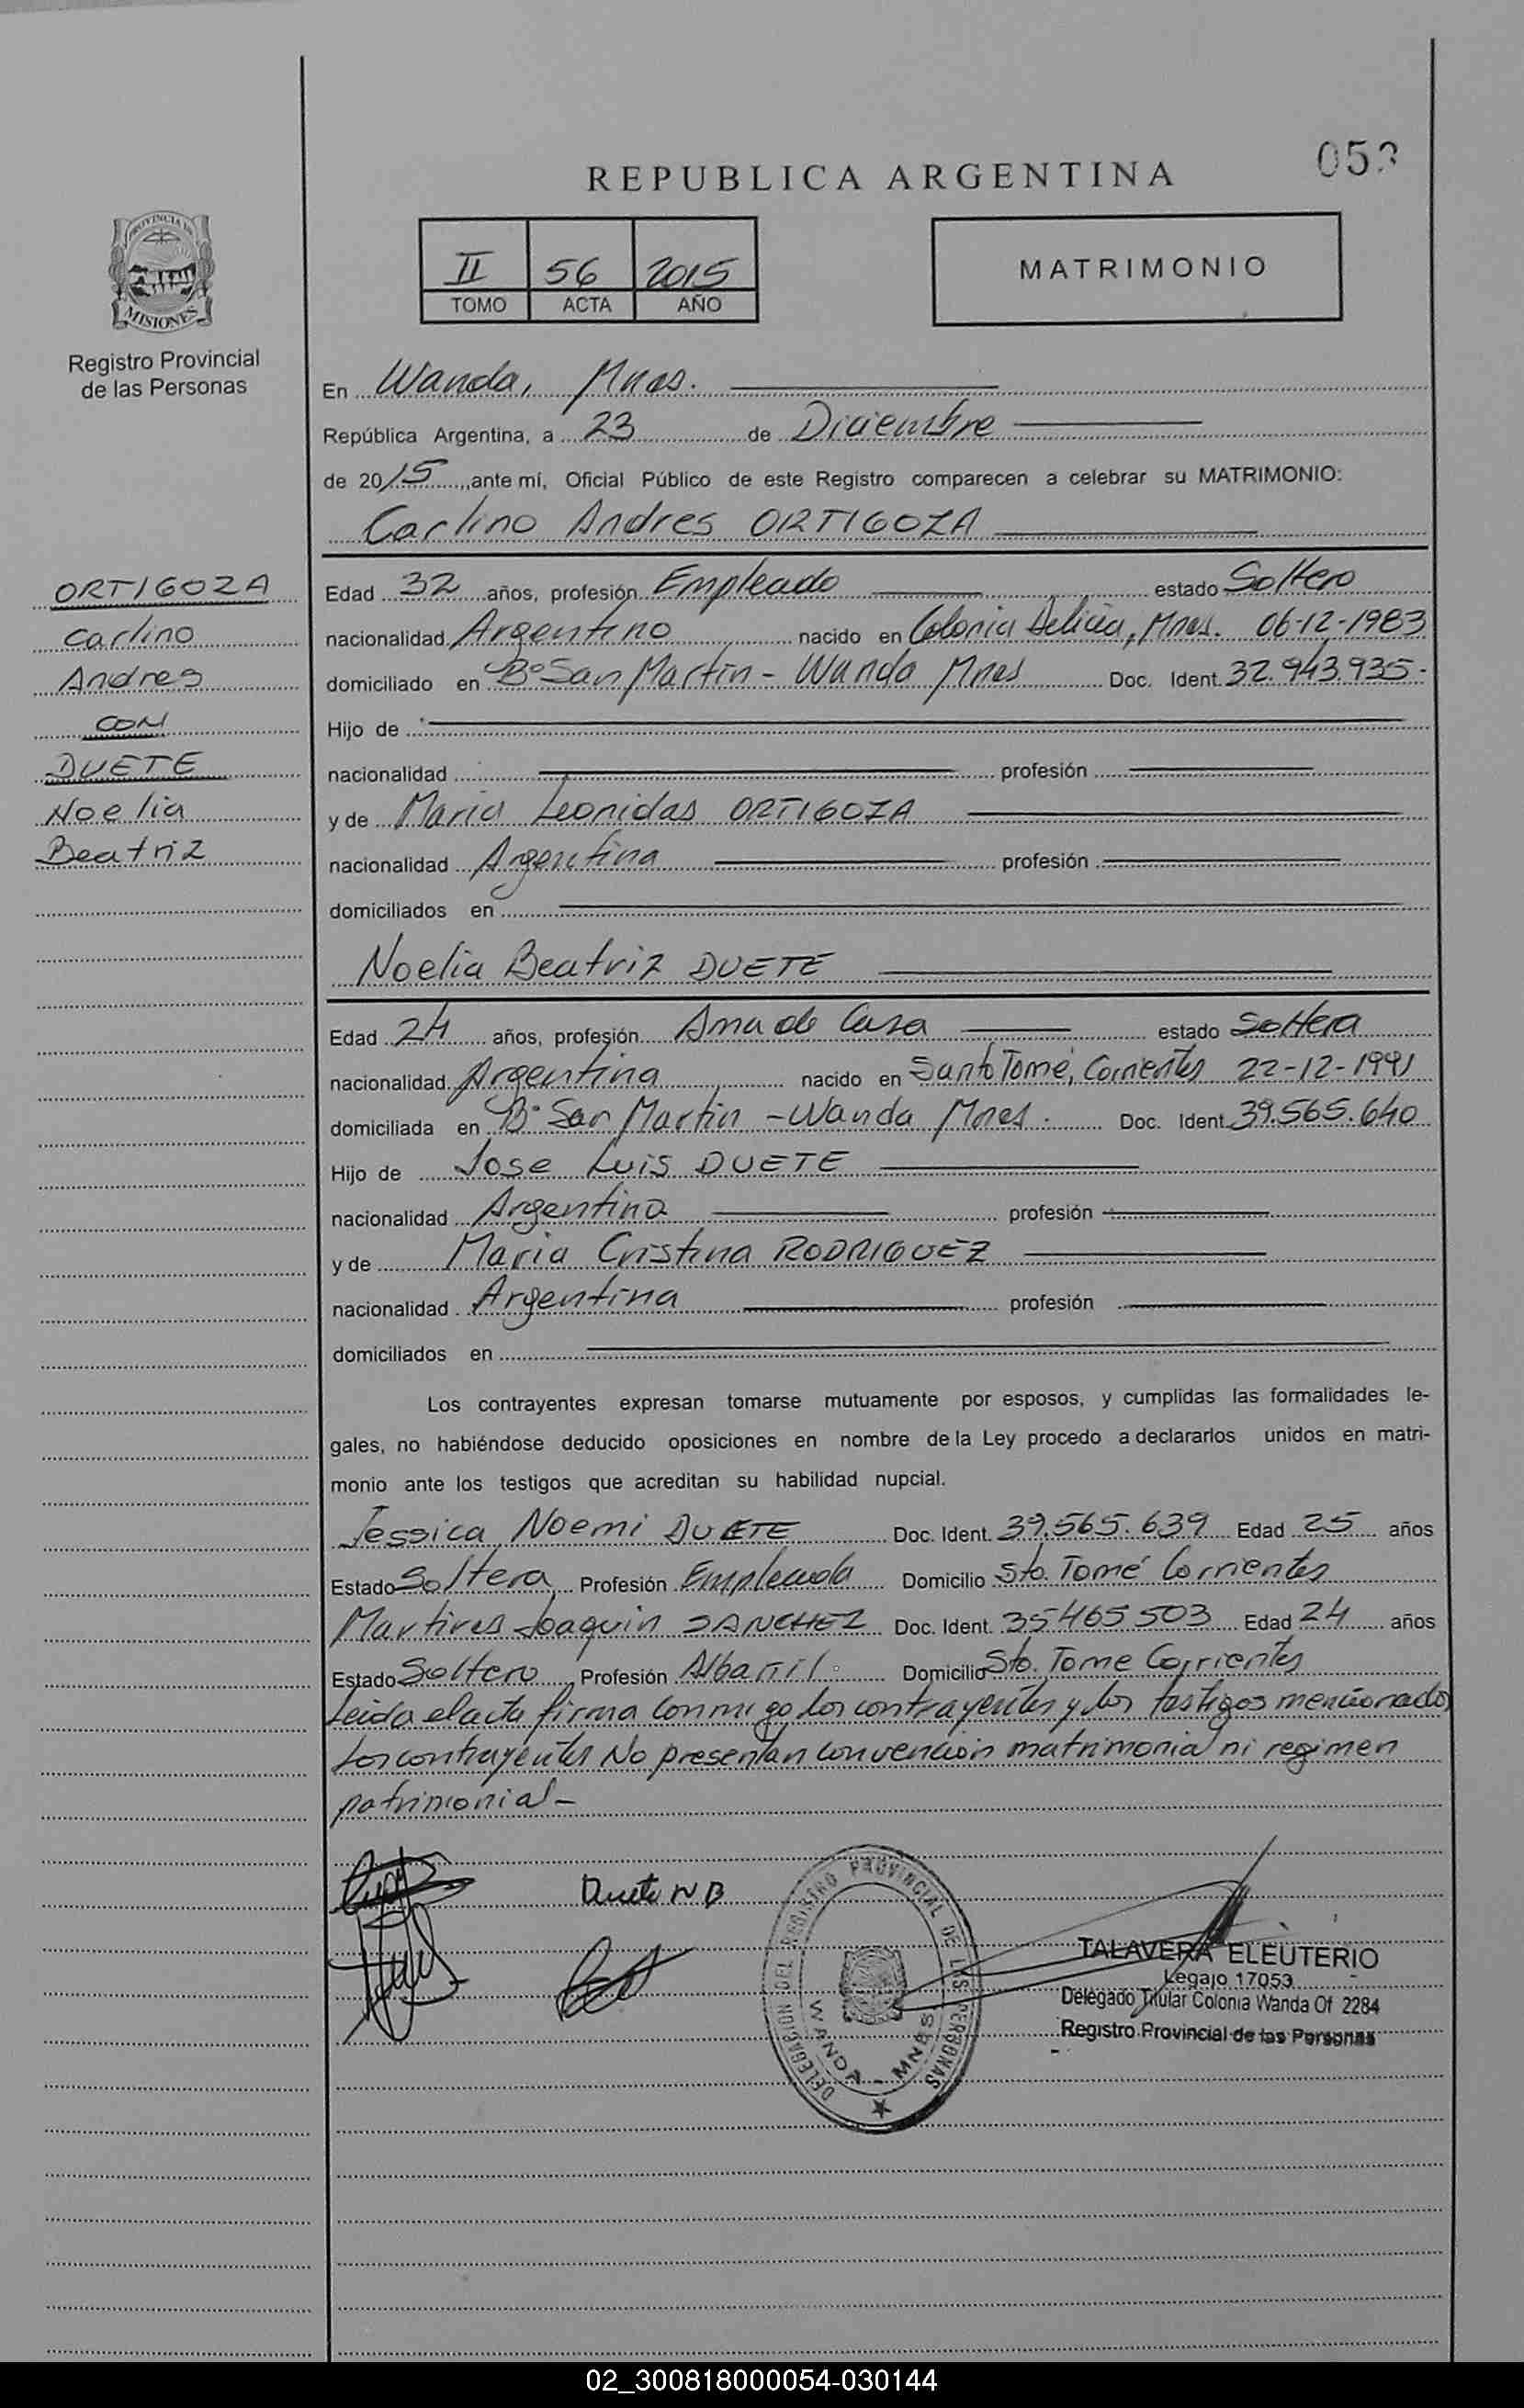 053
REPUBLICA ARGENTINA
PROVINCIA DE
MISIONES
Registro Provincial
de las Personas
II 56 2015
TOMO ACTA AÑO
MATRIMONIO
En Wanda, Mnes.
República Argentina, a 23 de Diciembre
de 2015, ante mí, Oficial Público de este Registro comparecen a celebrar su MATRIMONIO:
Carlino Andres ORTIGOZA
ORTIGOZA
Carlino
Andres
CON
DUETE
Noelia
Beatriz
Edad 32 años, profesión Empleado estado Soltero
nacionalidad Argentino nacido en Colonia Delicia, Mnes. 06-12-1983
domiciliado en Bº San Martin - Wanda Mnes Doc. Ident. 32.943.935-
Hijo de
nacionalidad profesión
y de Maria Leonidas ORTIGOZA
nacionalidad Argentina profesión
domiciliados en
Noelia Beatriz DUETE
Edad 24 años, profesión Ama de Casa estado Soltera
nacionalidad Argentina nacido en Santo Tomé, Corrientes 22-12-1991
domiciliada en Bº San Martin - Wanda Mnes. Doc. Ident. 39.565.640
Hijo de Jose Luis DUETE
nacionalidad Argentino profesión
y de Maria Cristina RODRIGUEZ
nacionalidad Argentina profesión
domiciliados en
Los contrayentes expresan tomarse mutuamente por esposos, y cumplidas las formalidades le-
gales, no habiéndose deducido oposiciones en nombre de la Ley procedo a declararlos unidos en matri-
monio ante los testigos que acreditan su habilidad nupcial.
Jessica Noemi DUETE Doc. Ident. 39.565.639 Edad 25 años
Estado Soltera Profesión Empleada Domicilio Sto. Tomé Corrientes
Martires Joaquin SANCHEZ Doc. Ident. 35465503 Edad 24 años
Estado Soltero Profesión Albañil. Domicilio Sto. Tome Corrientes
Leida el acta firma conmigo los contrayentes y los testigos mencionados
Los contrayentes No presentan convencion matrimonial ni regimen
patrimonial-
Duete N B
DELEGACION DEL REGISTRO PROVINCIAL DE LAS PERSONAS
WANDA - MNES
TALAVERA ELEUTERIO
Legajo 17053
Delegado Titular Colonia Wanda Of 2284
Registro Provincial de las Personas
02_300818000054-030144